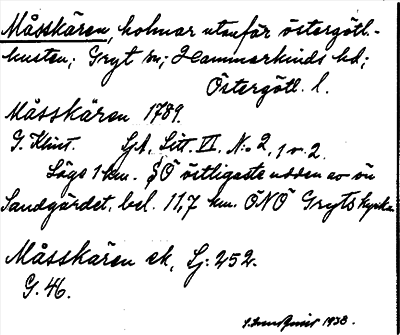 Måsskären, holmar utanför östergötl.-
kusten; Gryt sn; Hammarkinds hd;
Östergötl. l.
Måsskären 1789.
G. Klint. Sjk. Litt. VI. No 2, 1 v. 2.
Läge 1 km. SÖ östligaste udden av ön
Sandgärdet, bel. 11,7 km. ÖNÖ Gryts kyrka.
Måsskären ek, Sj: 252.
G. 46.
1938.